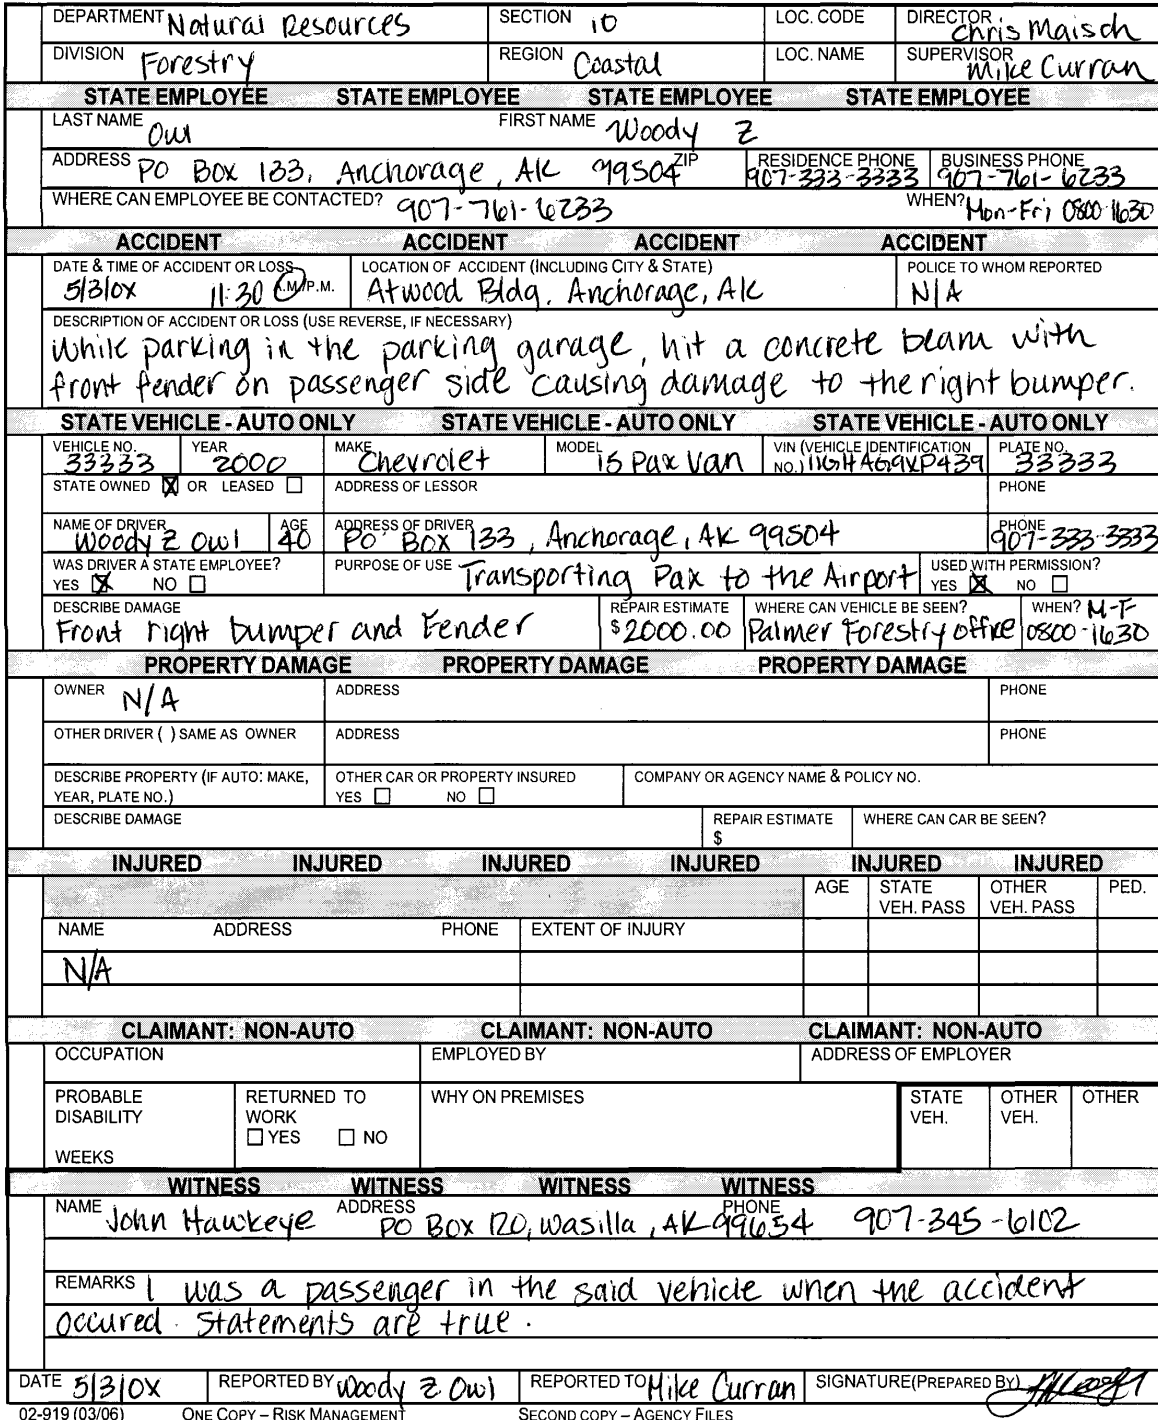 DEPARTMENT Natural Resources SECTION 10 LOC. CODE DIRECTOR Chris Maisch
DIVISION Forestry REGION Coastal LOC. NAME SUPERVISOR Mike Curran
STATE EMPLOYEE STATE EMPLOYEE STATE EMPLOYEE STATE EMPLOYEE
LAST NAME Owl FIRST NAME Woody Z
ADDRESS PO Box 133, Anchorage, AK 99504 ZIP RESIDENCE PHONE 907-333-3333 BUSINESS PHONE 907-761-6233
WHERE CAN EMPLOYEE BE CONTACTED? 907-761-6233 WHEN? Mon-Fri 0800-1630
ACCIDENT ACCIDENT ACCIDENT ACCIDENT
DATE & TIME OF ACCIDENT OR LOSS LOCATION OF ACCIDENT (INCLUDING CITY & STATE) POLICE TO WHOM REPORTED
5/3/0X 11:30 A.M./P.M. Atwood Bldg. Anchorage, AK N/A
DESCRIPTION OF ACCIDENT OR LOSS (USE REVERSE, IF NECESSARY)
While parking in the parking garage, hit a concrete beam with
front fender on passenger side causing damage to the right bumper.
STATE VEHICLE - AUTO ONLY STATE VEHICLE - AUTO ONLY STATE VEHICLE - AUTO ONLY
VEHICLE NO. 33333 YEAR 2000 MAKE Chevrolet MODEL 15 Pax Van VIN (VEHICLE IDENTIFICATION NO.) PLATE NO. 33333
STATE OWNED ☒ OR LEASED ☐ ADDRESS OF LESSOR PHONE
NAME OF DRIVER Woody Z Owl AGE 40 ADDRESS OF DRIVER PO Box 133, Anchorage, AK 99504 PHONE 907-333-3333
WAS DRIVER A STATE EMPLOYEE? YES ☒ NO ☐ PURPOSE OF USE Transporting Pax to the Airport USED WITH PERMISSION? YES ☒ NO ☐
DESCRIBE DAMAGE REPAIR ESTIMATE WHERE CAN VEHICLE BE SEEN? WHEN? M-F
Front right bumper and Fender $2000.00 Palmer Forestry office 0800-1630
PROPERTY DAMAGE PROPERTY DAMAGE PROPERTY DAMAGE
OWNER N/A ADDRESS PHONE
OTHER DRIVER ( ) SAME AS OWNER ADDRESS PHONE
DESCRIBE PROPERTY (IF AUTO: MAKE, OTHER CAR OR PROPERTY INSURED COMPANY OR AGENCY NAME & POLICY NO.
YEAR, PLATE NO.) YES ☐ NO ☐
DESCRIBE DAMAGE REPAIR ESTIMATE WHERE CAN CAR BE SEEN?
$
INJURED INJURED INJURED INJURED INJURED INJURED
AGE STATE OTHER PED.
VEH. PASS VEH. PASS
NAME ADDRESS PHONE EXTENT OF INJURY
N/A
CLAIMANT: NON-AUTO CLAIMANT: NON-AUTO CLAIMANT: NON-AUTO
OCCUPATION EMPLOYED BY ADDRESS OF EMPLOYER
PROBABLE RETURNED TO WHY ON PREMISES STATE OTHER OTHER
DISABILITY WORK VEH. VEH.
☐ YES ☐ NO
WEEKS
WITNESS WITNESS WITNESS WITNESS
NAME John Hawkeye ADDRESS PO Box 120, Wasilla, AK 99654 PHONE 907-345-6102
REMARKS I was a passenger in the said vehicle when the accident
occured. Statements are true.
DATE 5/3/0X REPORTED BY Woody Z Owl REPORTED TO Mike Curran SIGNATURE (PREPARED BY)
02-919 (03/06) ONE COPY – RISK MANAGEMENT SECOND COPY – AGENCY FILES